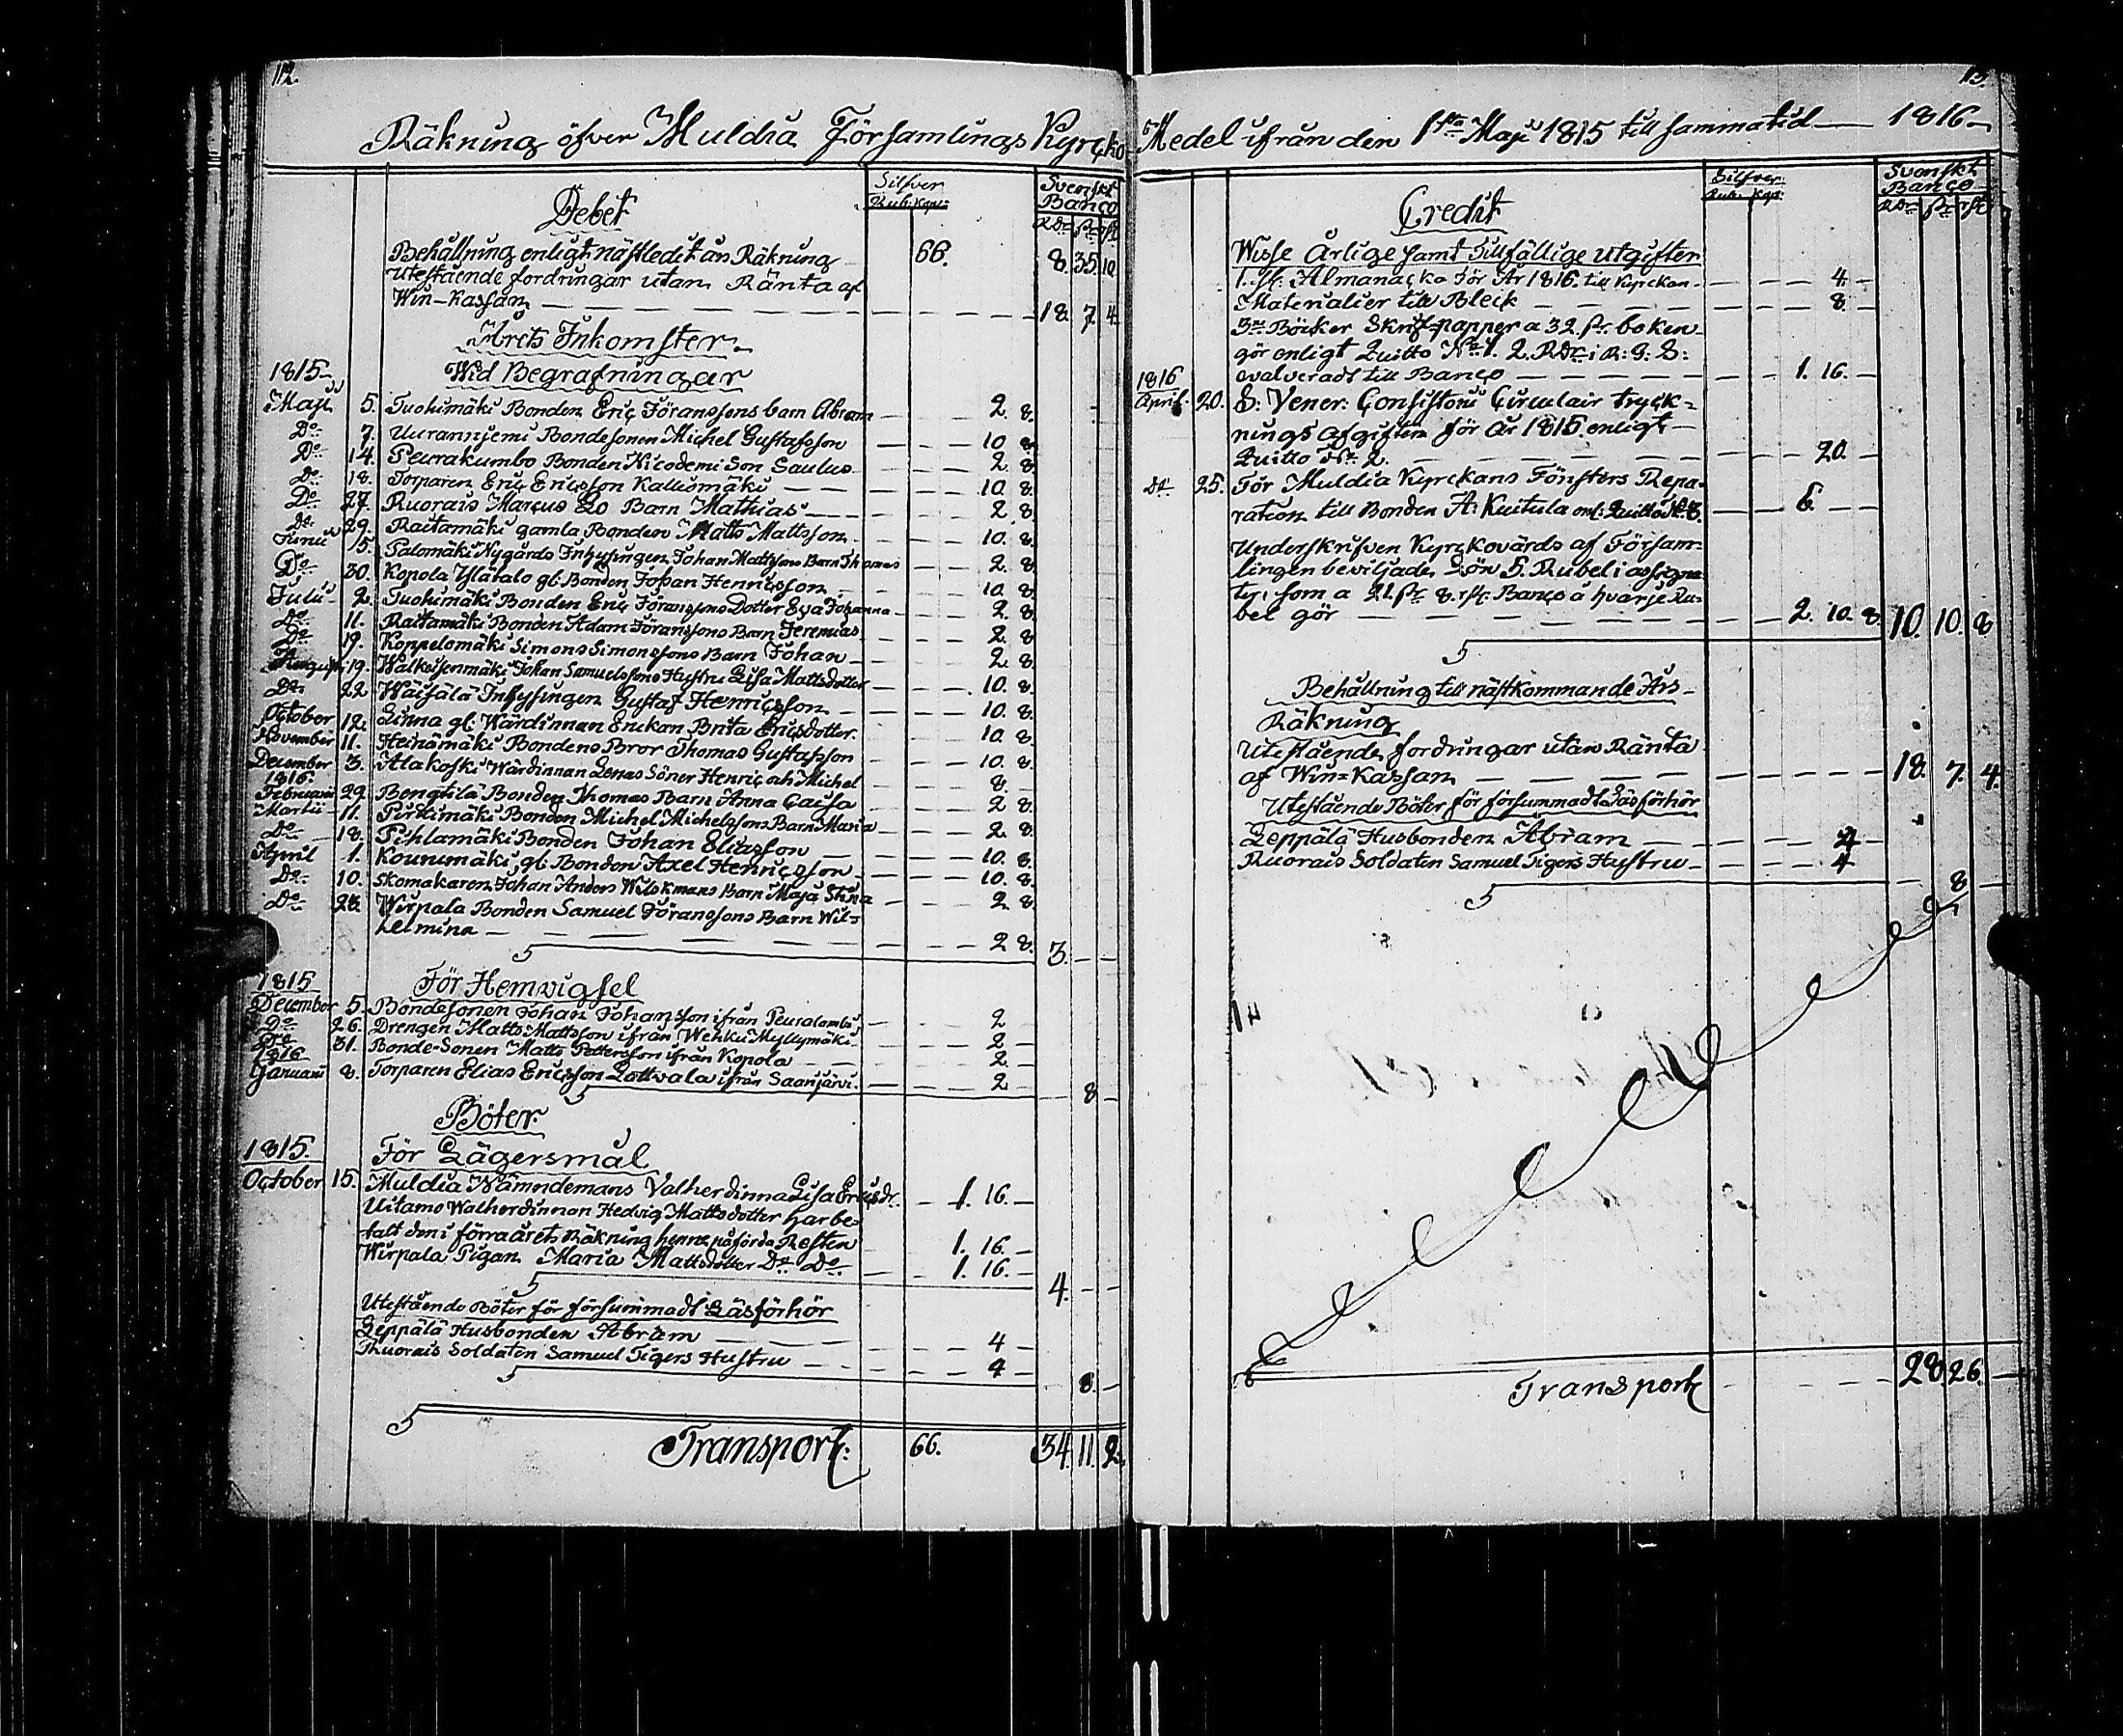 112.
Räkning öfver Muldia Församlings Kyrcko
Debet
Silfver
Rub: Kop:
Svenskt
Banco
Rdr sk rst
Behållning enligt nästledit års Räkning 66. 8. 35. 10
Utestående fordringar utan Ränta af
Win-Kassan — — — 18. 7. 4.
Årets Inkomster
1815 Wid Begrafningar
Maji 5. Tuohimäki Bonden Eric Göranssons barn Abram 2. 8.
Do 7. Uurannjemi Bondesonen Michel Gustafsson — 10. 8.
Do 14. Peurakumbo Bonden Nicodemi Son Saulus — 2. 8
Do 18. Torparen Eric Ericsson Kalliomäki — 10. 8.
Do 27. Ruorais Marcus Lo Barn Mathias — 2. 8
Do 29. Raitamäki gamla Bonden Matts Mattsson — 10. 8.
Junii 15. Palomäki Nygårds Inhysingen Johan Mattssons Barn Thomas — 2. 8.
Do 30. Kopola Ylätalo gl. Bonden Johan Henricsson — 10. 8.
Julii 2. Tuohimäki Bonden Eric Göranssons Dotter Eva Johanna — 2. 8.
Do 11. Raitamäki Bonden Adam Göranssons Barn Jeremias — 2. 8
Do 19. Koppelomäki Simons Simonssons Barn Johan — 2. 8.
Augusti 19. Walkeisenmäki Johan Samuelssons Hustru Lisa Mattsdotter — 10. 8.
Do 22 Wäisälä Inhysingen Gustaf Henricsson — 10. 8.
October 12. Linna gl. Wärdinnan Enckan Brita Ericsdotter — 10. 8
November 11. Heinämäki Bondens Bror Thomas Gustafsson — 10. 8.
December 3. Alakoski Wärdinnan Lenas Söner Henric och Michel — 8.
1816.
Februarii 29. Bengtilä Bonden Thomas Barn Anna Caisa — 2 8.
Martii 11. Pirkimäki Bonden Michel Michelssons Barn Maria — 2. 8.
Do 18. Pihlamäki Bonden Johan Eliasson — 10. 8.
April 1. Kounimäki gl. Bonden Axel Henricsson — 10. 8.
Do 10. Skomakaren Johan Anders Wilckmans Barn Maja Stina — 2 8.
Do 28. Wirpala Bonden Samuel Göranssons Barn Wil=
helmina — 2 8. 3. — —
1815 För Hemvigsel
December 5. Bondesonen Johan Johansson ifrån — 2
Do 26. Drengen Matts Mattsson ifrån Wehku Myllymäki — 2 —
Do 31. Bonde-Sonen Matts Pettersson ifrån Kopola — 2. —
1816
Januarii 8. Torparen Elias Ericsson Lottvala ifrån Saanjärvi. — 2 — 8 —
Böter
1815. För Lägersmål
October 15. Muldia Nämndemans Valherdinna Lisa Ericsdr. — 1. 16. —
Uitamo Walherdinnan Hedvig Mattsdotter har be=
talt den i förra årets Räkning henne påförda Resten 1. 16. —
Wirpala Pigan Maria Mattsdotter Do Do — 1. 16. — 4. — —
Utestående Böter för försummadt Läsförhör
Leppälä Husbonden Abram — 4 —
Ruorais Soldaten Samuel Tigers Hustru — 4 — 8. —
Transport: 66. 34. 11. 2.
13.
Medel ifrån den 1sta Maji 1815 till samma tid — 1816
Credit
Silfver
Rub. Kop.
Svenskt
Banco
Rdr sk rst
Wisse Årlige samt Tillfällige Utgifter
1. st. Almanacka för År 1816. till Kyrckan — 4. —
Materialier till Bleck — 8. —
3ne Böcker Skrif-papper a 32. sk. boken
gör enligt Quitto No 1. 2. Rdr i R: G: S:
evalveradt till Banco — 1. 16. —
1816
April 20. S: Vener: Consistorii Circulair tryck=
nings afgiften för år 1815. enligt
Quitto No 2. — 20. —
Do 25. För Muldia Kyrckans Fönsters Repa=
ration till Bonden A: Kuitula enl: Quitto No 3. — 6. — —
Underskrifven Kyrckovärds af Försam=
lingen beviljade Lön 5. Rubel i assigna
ter, som a 21. sk 8. rst. Banco á hvarje Ru=
bel gör — 2. 10. 8. 10. 10. 8
Behållning till nästkommande Års
Räkning
Utestående fordringar utan Ränta
af Win=Kassan — 18. 7. 4.
Utestående Böter för försummadt Läsförhör
Leppälä Husbonden Abram — 4 —
Ruorais Soldaten Samuel Tigers Hustru — 4 — 8 —
Transport — 28. 26. —